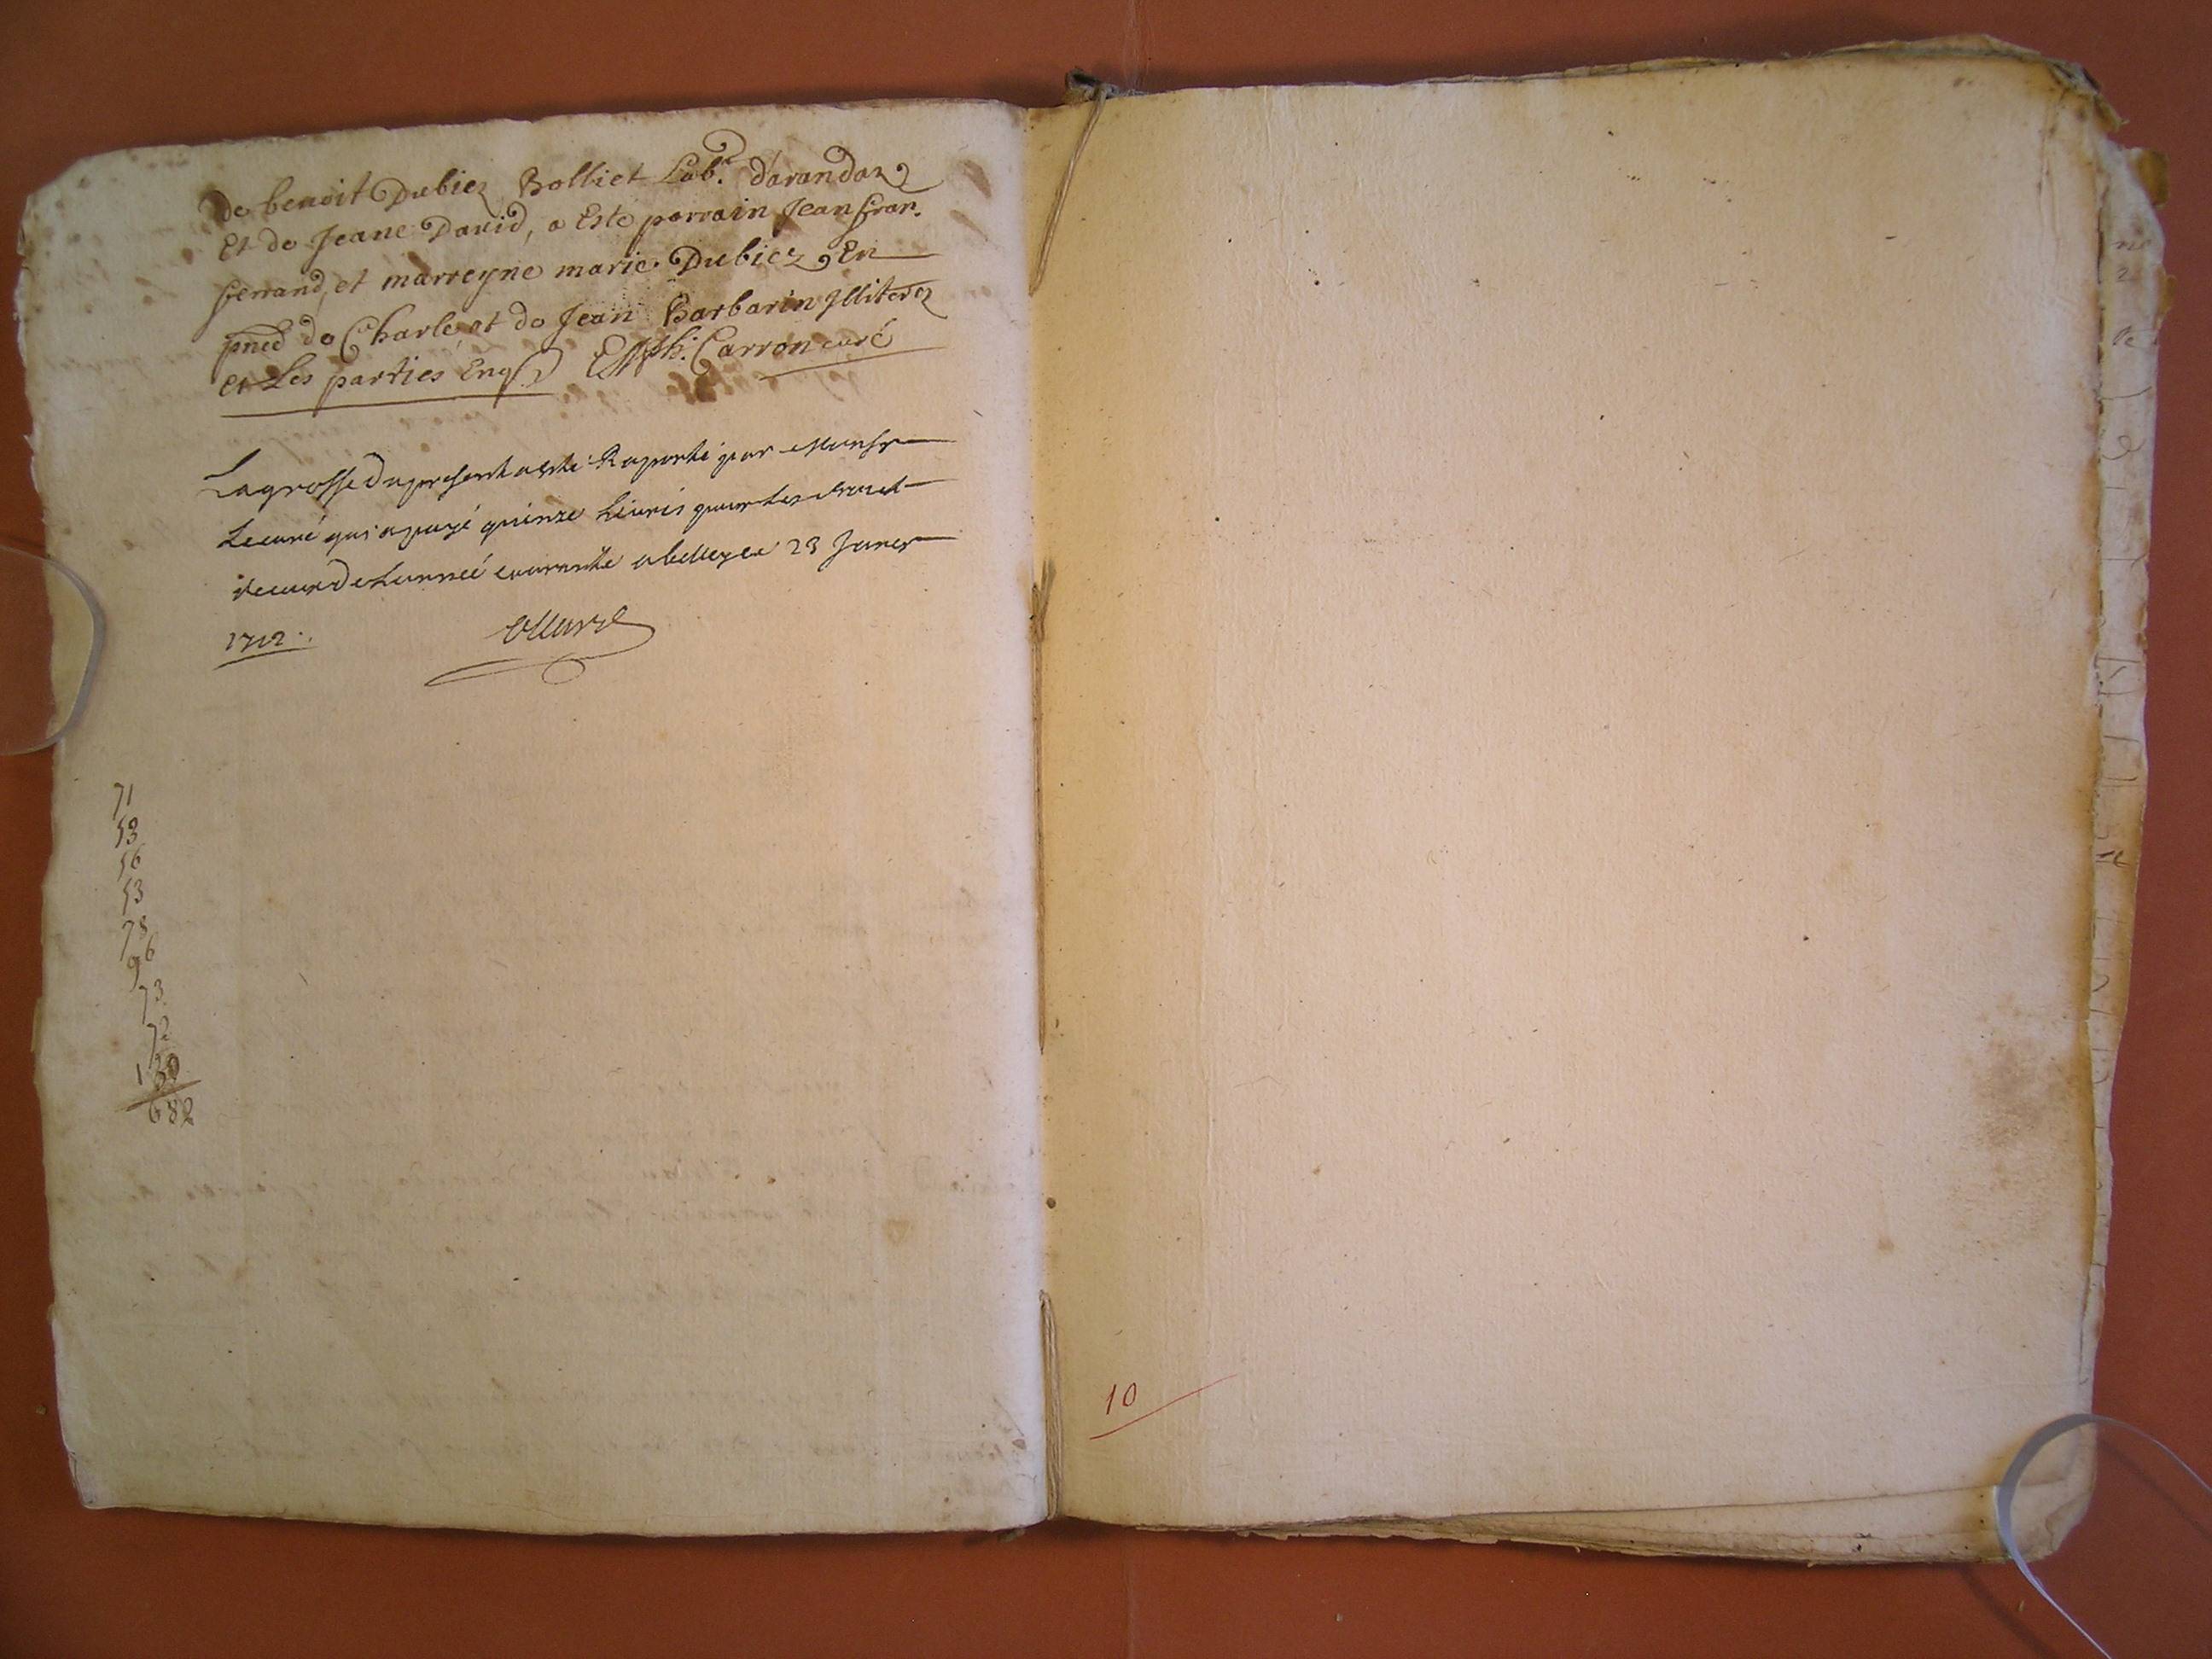 de benoit Dubiez Bolliet Lab.r d'arandaz
Et de Jeane David, a Este parrain Jean fran.
ferrand, et marreyne marie Dubiez, En
pnce de Charle, et de Jean Barbarin Illiterez
Et Les parties Enqs Carron curé
La grosse du present a esté Raporté par Monsr
Le curé qui a payé quinze Livres pour les
de Lanneé courante a belley ce 23 Janer
1712.
71
53
56
53
78
96
73
72
130
682
10